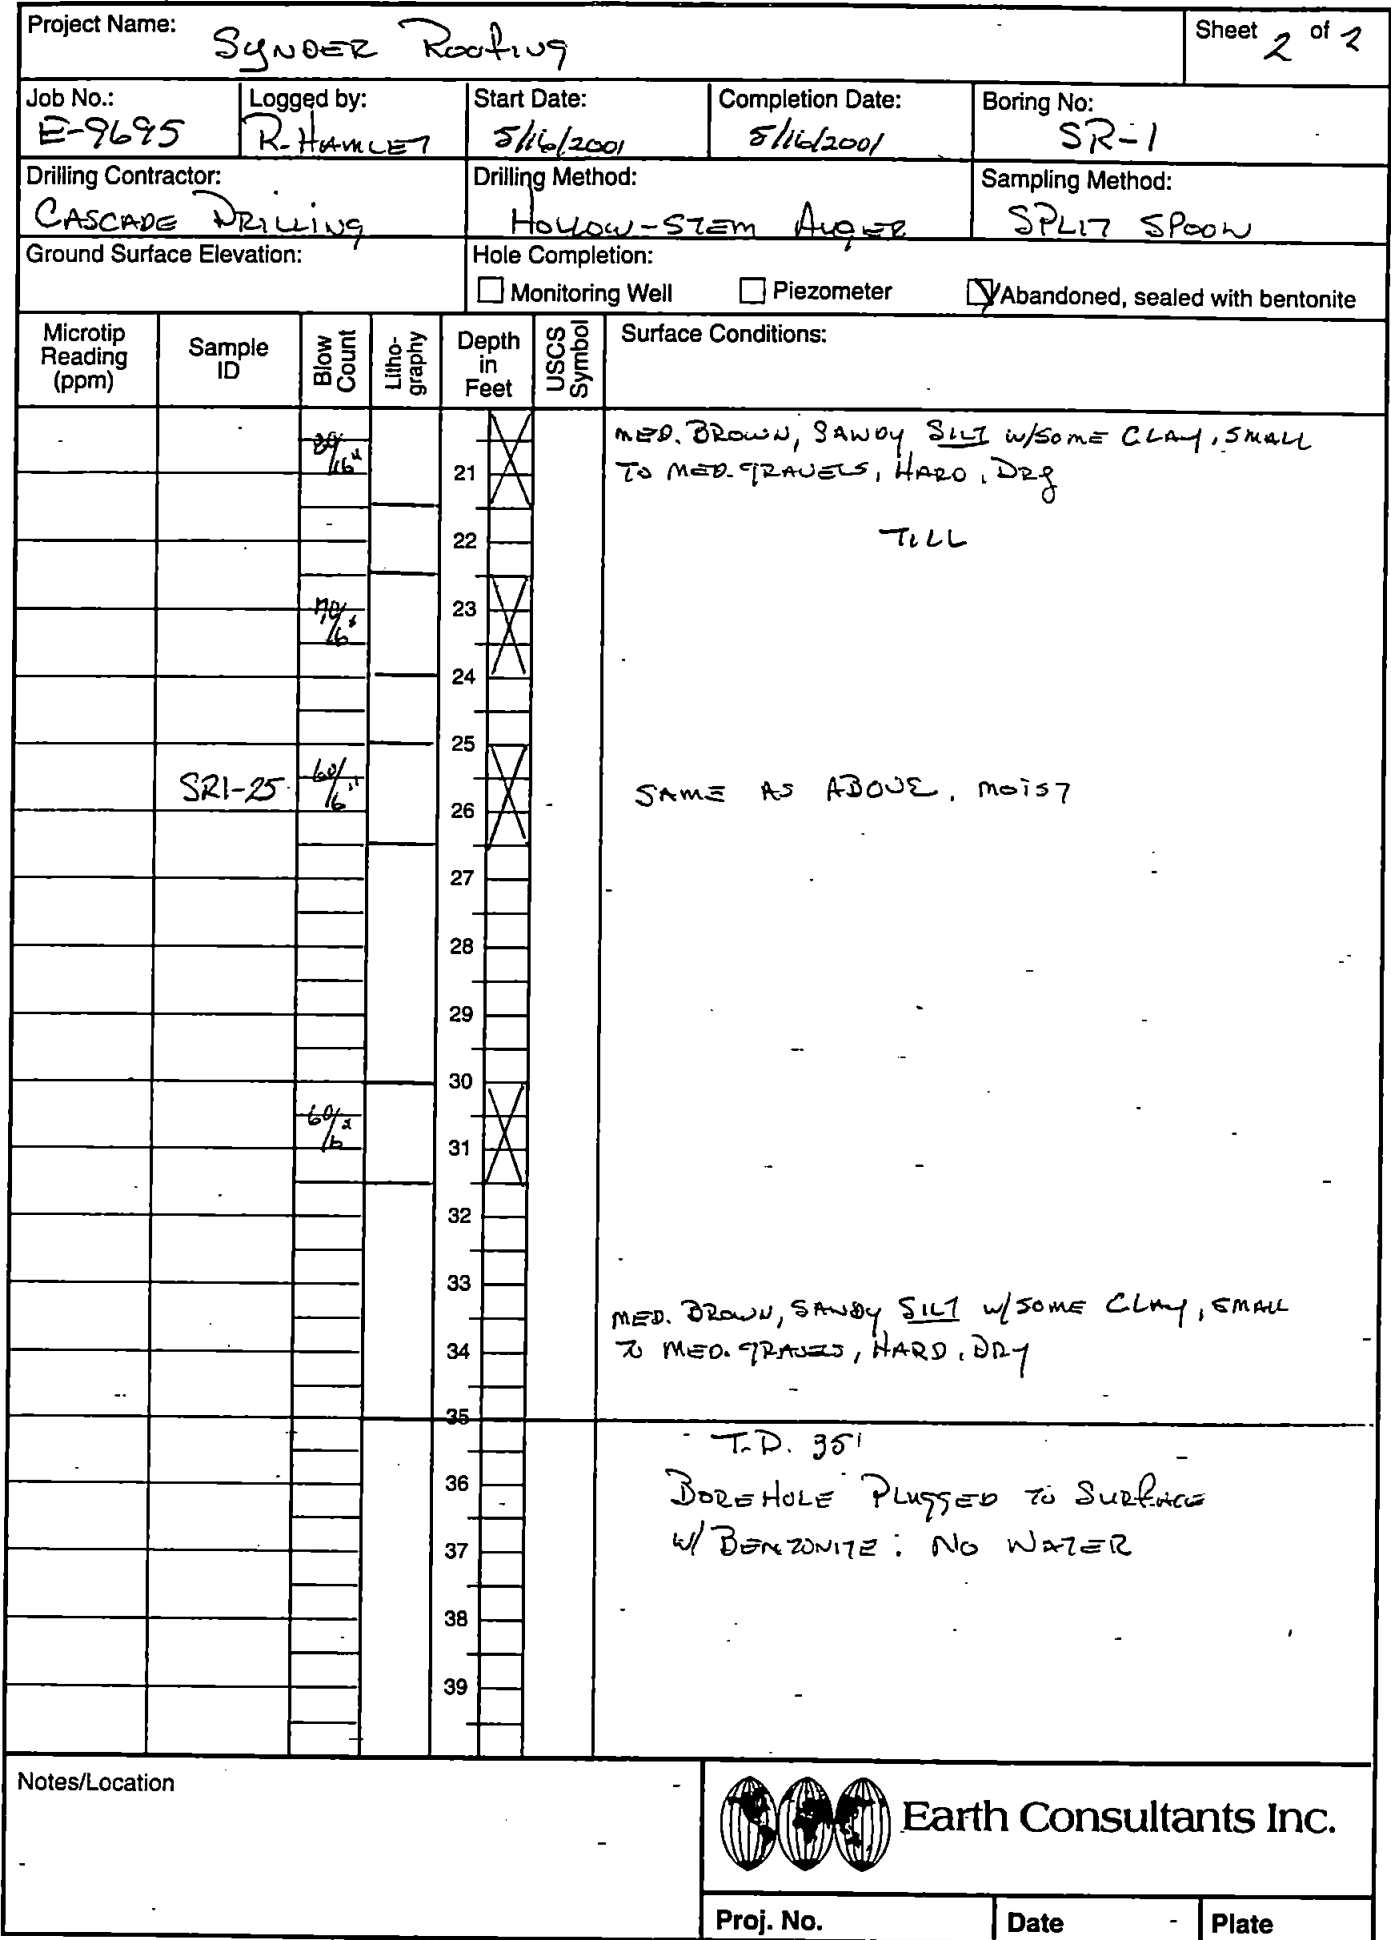 Project Name: SYNDER ROOFING
Sheet 2 of 2
Job No.: E-9695
Logged by: R. HAMLET
Start Date: 5/16/2001
Completion Date: 5/16/2001
Boring No: SR-1
Drilling Contractor: CASCADE DRILLING
Drilling Method: HOLLOW-STEM AUGER
Sampling Method: SPLIT SPOON
Ground Surface Elevation:
Hole Completion:
Monitoring Well
Piezometer
Abandoned, sealed with bentonite
Microtip Reading (ppm)
Sample ID
Blow Count
Litho-graphy
Depth in Feet
USCS Symbol
Surface Conditions:
MED. BROWN, SANDY SILT W/SOME CLAY, SMALL
21 TO MED. GRAVELS, HARD, DRY
22 TILL
23
24
25
SR1-25 60/6" 26 SAME AS ABOVE, MOIST
27
28
29
30
60/6"
31
32
33
MED. BROWN, SANDY SILT W/SOME CLAY, SMALL
34 TO MED. GRAVELS, HARD, DRY
35
T.D. 35'
36 BOREHOLE PLUGGED TO SURFACE
37 W/ BENTONITE: NO WATER
38
39
Notes/Location
Earth Consultants Inc.
Proj. No.
Date
Plate